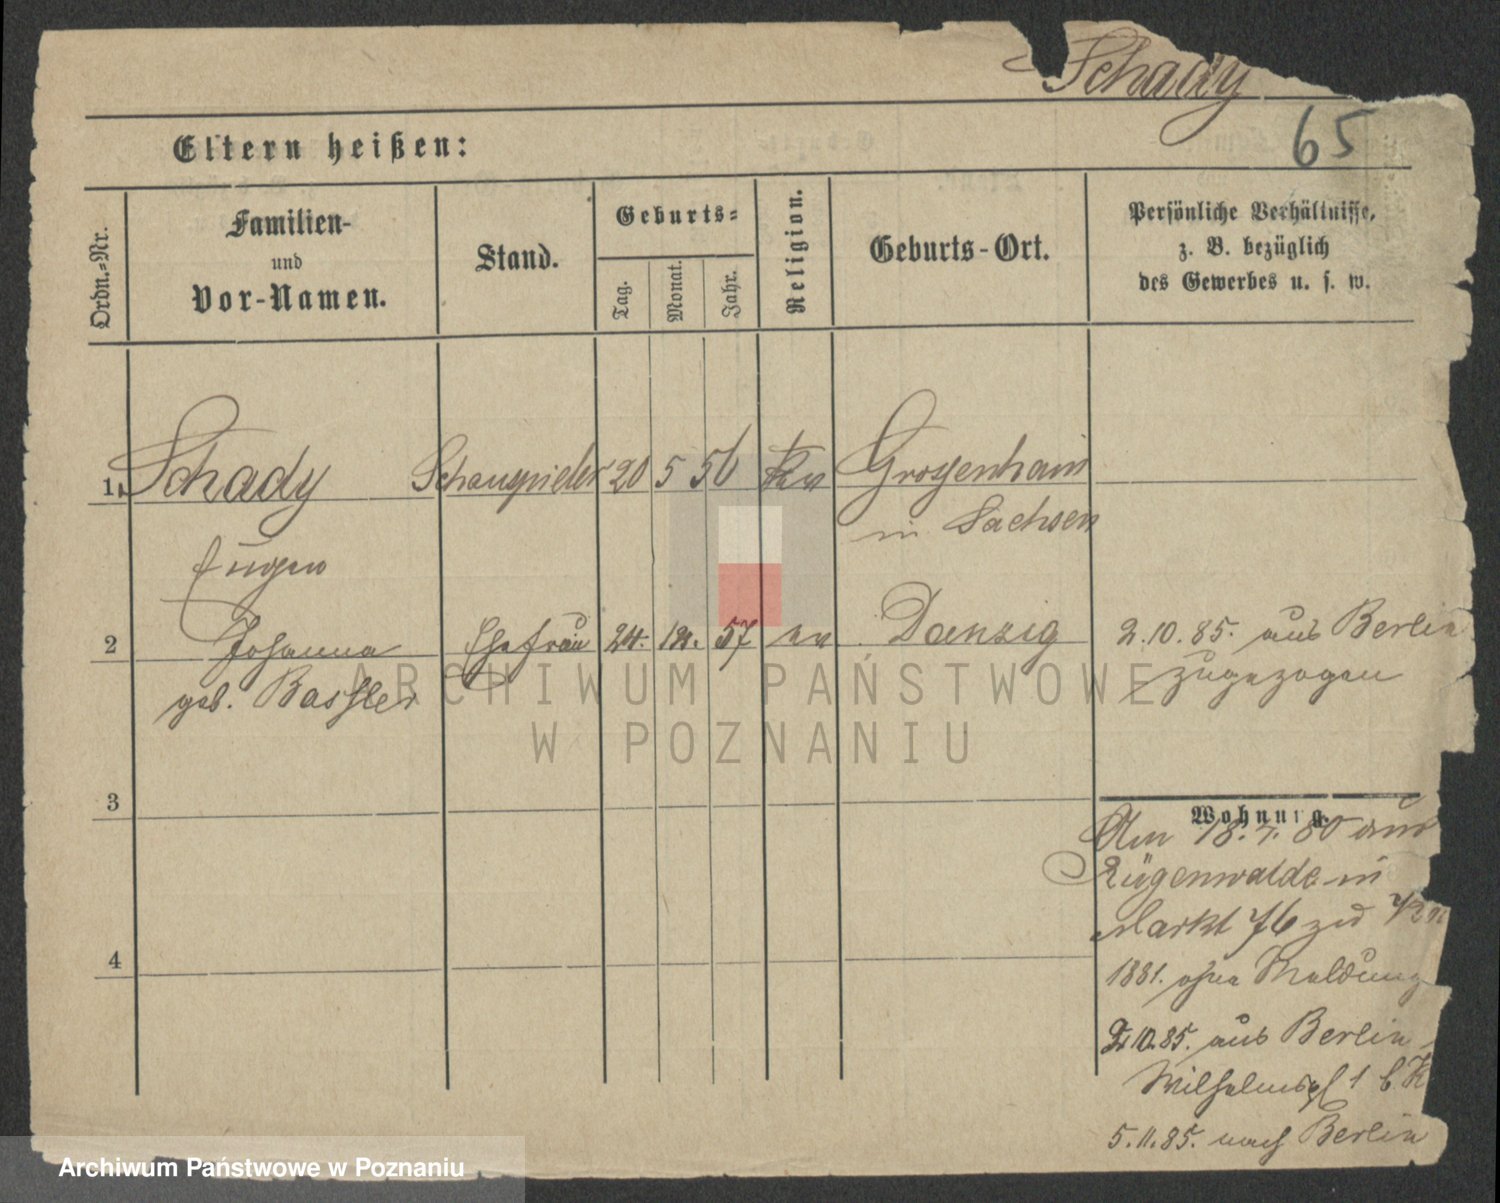 Schady
65
Eltern heißen:
Ordn.-Nr.
Familien-
und
Vor-Namen.
Stand.
Geburts-
Tag.
Monat.
Jahr.
Religion.
Geburts-Ort.
Persönliche Verhältnisse,
z. B. bezüglich
des Gewerbes u. s. w.
1. Schady Schauspieler 20 5 56 Ev Grossenhain
in Sachsen
Eugen
2 Johanna Ehefrau 24. 12. 57 ev Danzig 2.10.85. aus Berlin
geb. Bassler zugezogen
ARCHIWUM PAŃSTWOWE
W POZNANIU
3
Wohnung.
Am 18. 7. 80 aus
Rügenwalde in
Markt 76 zu
4
1881. ohne Meldung
2.10.85. aus Berlin
Wilhelmspl 1 b.
5.11.85. nach Berlin
Archiwum Państwowe w Poznaniu